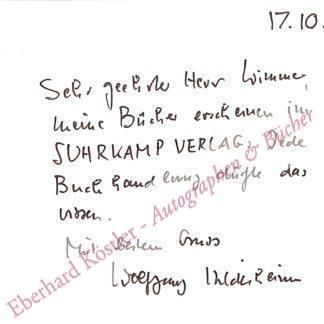 17.10.
Sehr geehrter Herr Wimmer,
meine Bücher erscheinen im
SUHRKAMP VERLAG. Jede
Buchhandlung dürfte das
wissen.
Mit bestem Gruss
Wolfgang Hildesheimer
Eberhard Köstler - Autographen & Bücher